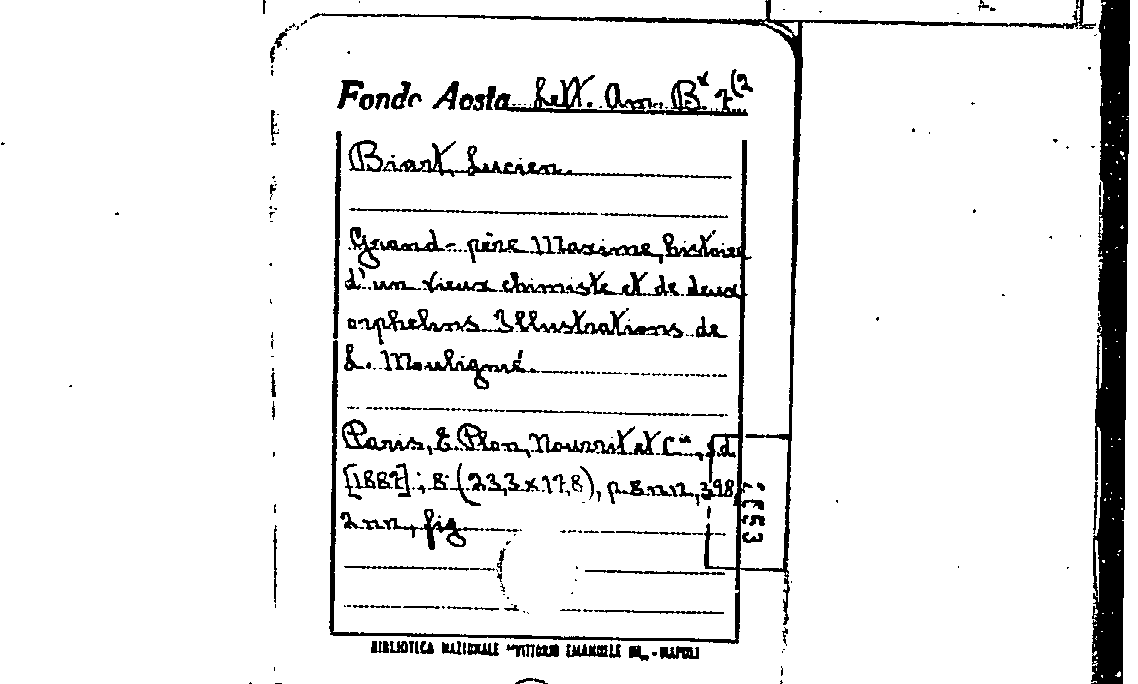 Fondo Aosta Lett. Am. B* 7(2
Biart, Lucien.
Grand-père Maxime, histoire
d'un vieux chimiste et de deux
orphelins Illustrations de
L. Mouligné.
Paris, E. Plon, Nourrit et Cie, s.d.
[1887]; 8° (23,3 x 17,8), p. 8 nn, 398,
2 nn, fig.
BIBLIOTECA NAZIONALE "VITTORIO EMANUELE III" - NAPOLI